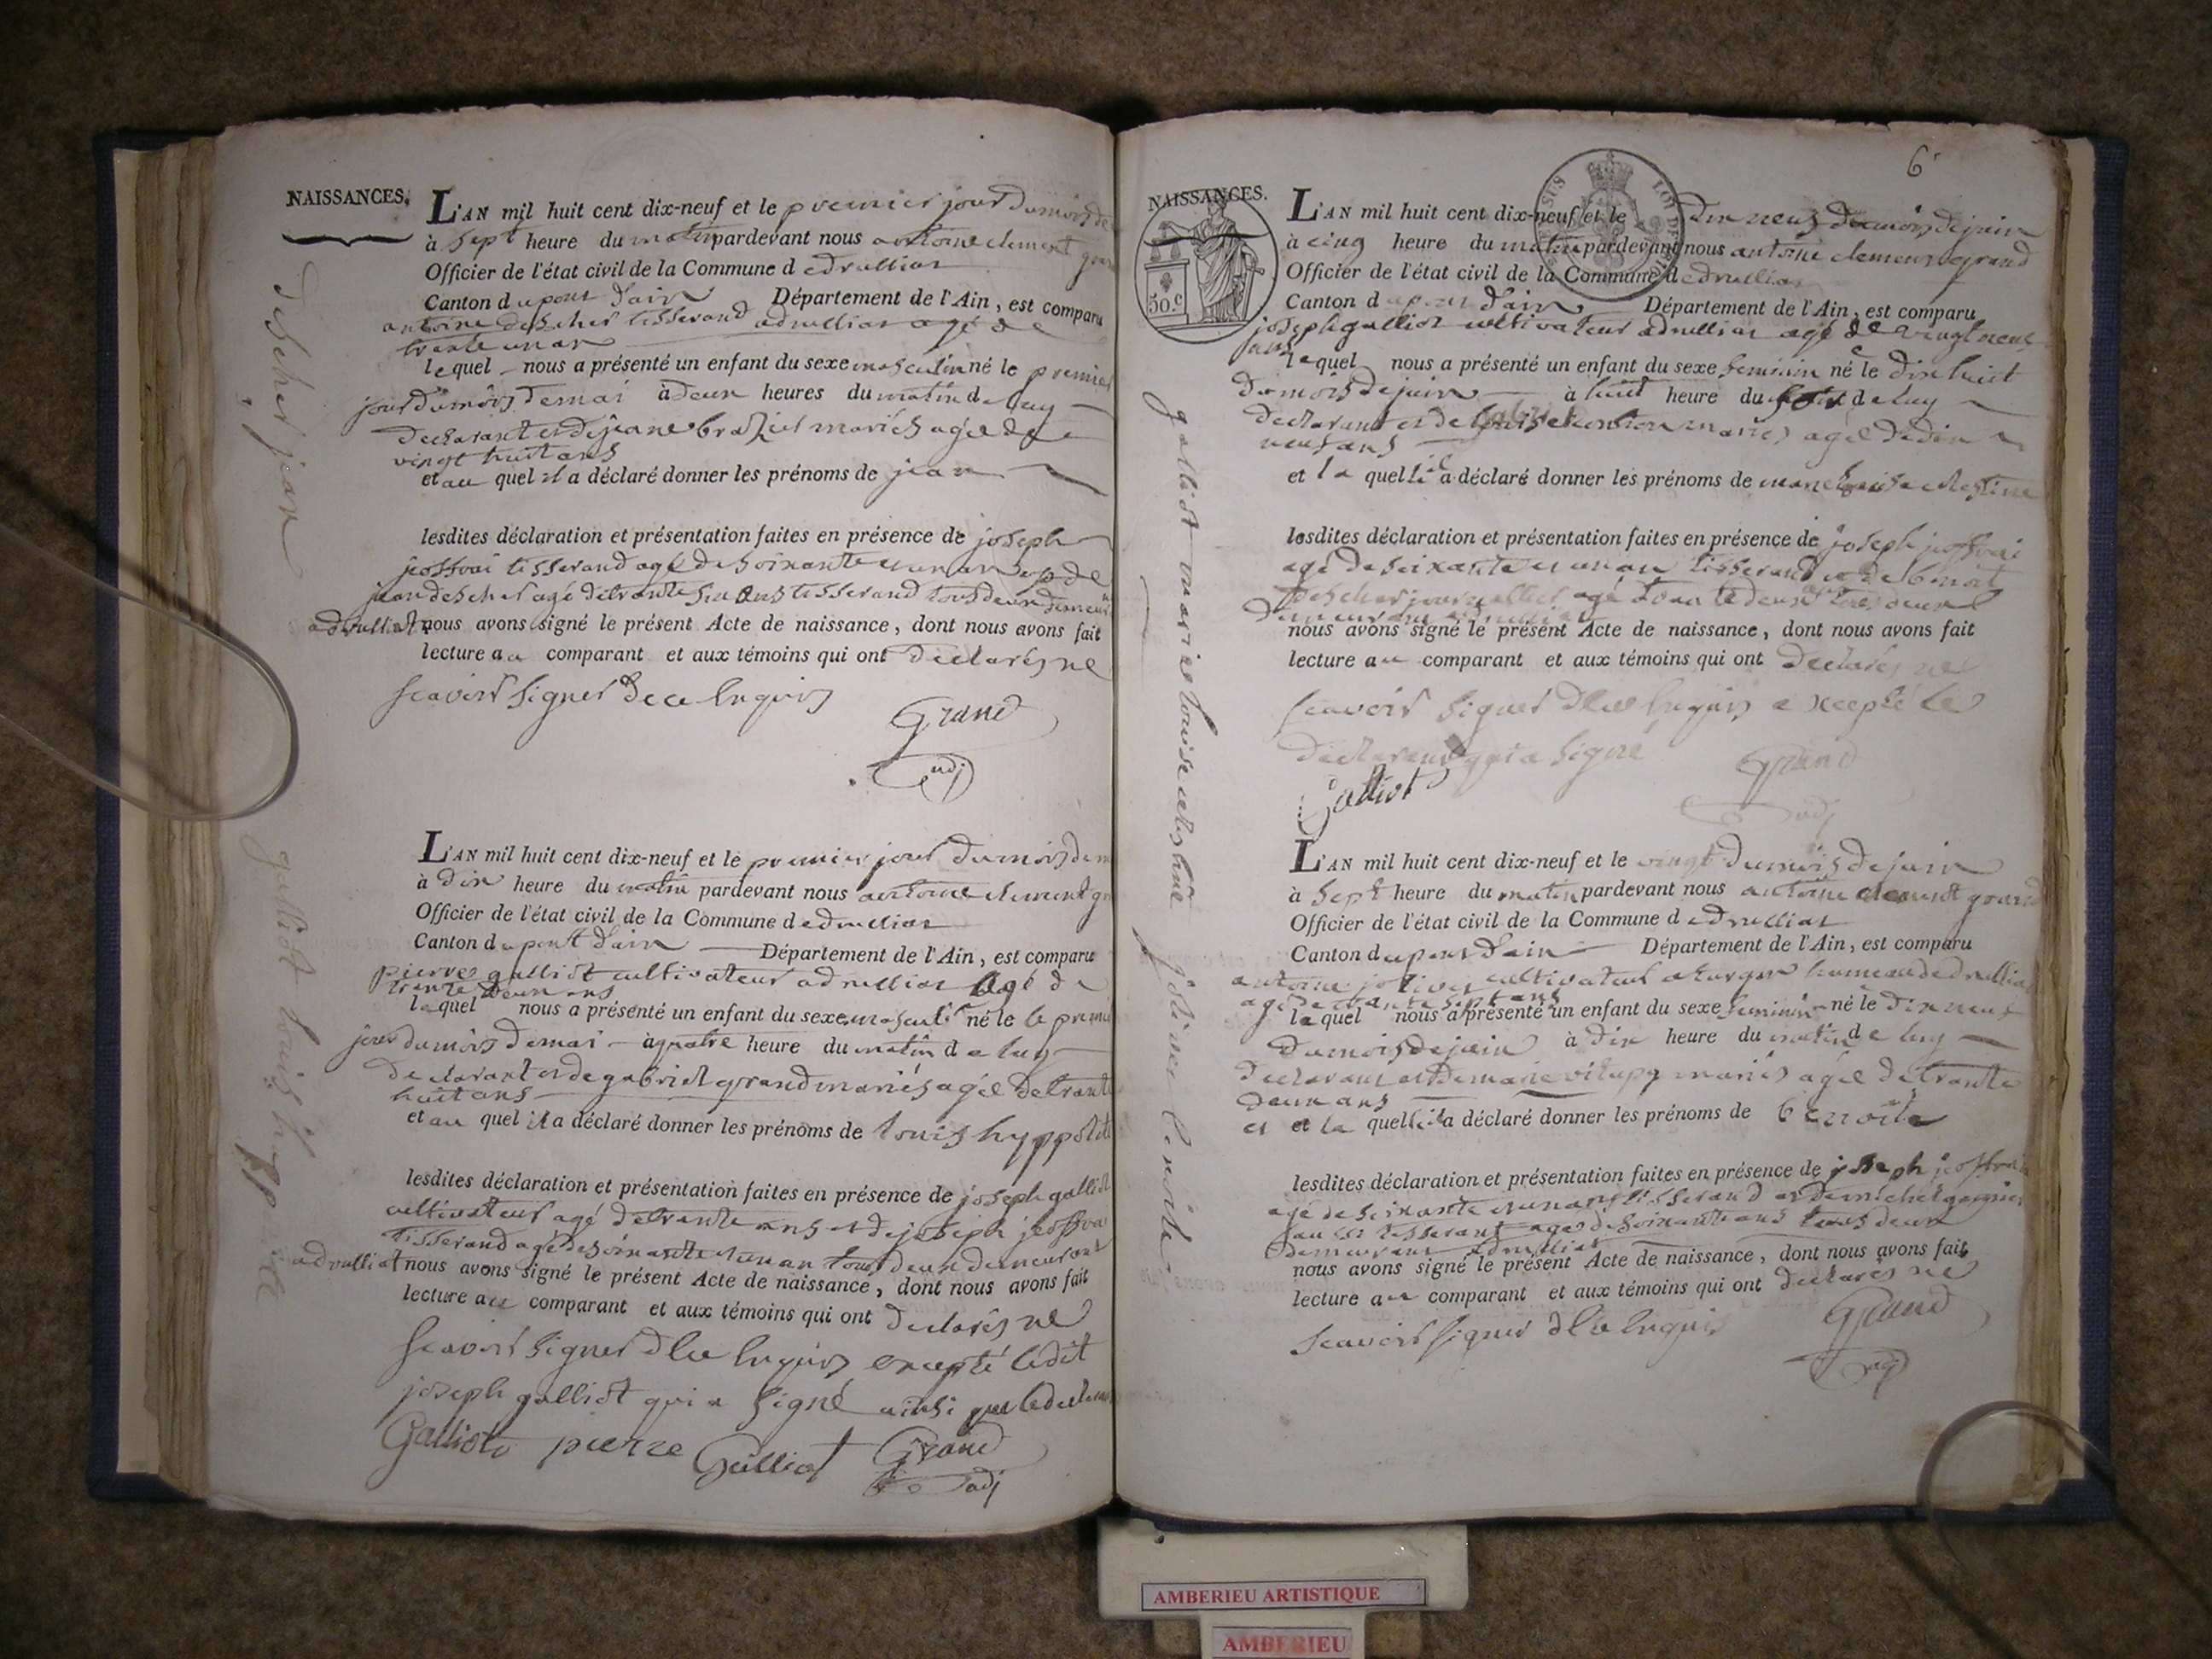 NAISSANCES.
L'AN mil huit cent dix-neuf et le premier jour du mois de
à sept heure du matin pardevant nous antoine clement
Officier de l'état civil de la Commune d e druilliat
Canton d u pont d'ain Département de l'Ain, est comparu
antoine descher tisserand a druilliat agé de
trente un an
lequel nous a présenté un enfant du sexe masculin né le premier
jour du mois de mai à deux heures du matin de luy
declarant et de jeane mariés agée de
vingt huit ans
et au quel il a déclaré donner les prénoms de jean
lesdites déclaration et présentation faites en présence de joseph
tisserand agé de soixante et un an et de
jean descher agé de trante six ans tisserand tous deux
a druilliat nous avons signé le présent Acte de naissance, dont nous avons fait
lecture au comparant et aux témoins qui ont declarés ne
scavoir signer de ce enquis
Grand
adj
descher jean
L'AN mil huit cent dix-neuf et le premier jour du mois de
à dix heure du matin pardevant nous antoine clement
Officier de l'état civil de la Commune d e druilliat
Canton d u pont d'ain Département de l'Ain, est comparu
pierre galliot cultivateur a druilliat agé de
trente deux ans
lequel nous a présenté un enfant du sexe né le le
jour du mois de mai à quatre heure du matin d e luy
declarant et de gabriel grand mariés agée de trante
huit ans
et au quel il a déclaré donner les prénoms de louis hyppolite
lesdites déclaration et présentation faites en présence de joseph galliot
cultivateur agé de trante ans et de joseph
tisserand agé de soixante et un an tous deux demeurant
a druilliat nous avons signé le présent Acte de naissance, dont nous avons fait
lecture au comparant et aux témoins qui ont declarés ne
scavoir signer de ce enquis excepté ledit
joseph galliot qui a signé ainsi que le
Galliot pierre Galliot Grand
adj
galliot louis
6
NAISSANCES.
50.c
L'AN mil huit cent dix-neuf et le dix neuf du mois de juin
à cinq heure du matin pardevant nous antoine clement grand
Officier de l'état civil de la Commune d e druilliat
Canton d u pont d'ain Département de l'Ain, est comparu
joseph galliot cultivateur a druilliat agé de vingt neuf
ans
lequel nous a présenté un enfant du sexe feminin né le dix huit
du mois de juin à huit heure du soir de luy
declarant et de mariés agée de dix
neuf ans
et la quelle il a déclaré donner les prénoms de marie louise celestine
lesdites déclaration et présentation faites en présence de joseph
agé de soixante et un an tisserand et de benoit
descher journallier agé deux
nous avons signé le présent Acte de naissance, dont nous avons fait
lecture au comparant et aux témoins qui ont declarés ne
scavoir signer de ce enquis excepté le
declarant qui a signé
Grand
Galliot
adj
galliot marie louise celestine
L'AN mil huit cent dix-neuf et le vingt du mois de juin
à sept heure du matin pardevant nous antoine clement grand
Officier de l'état civil de la Commune d e druilliat
Canton d u pont d'ain Département de l'Ain, est comparu
antoine cultivateur a hameau de druilliat
agé de sept ans
lequel nous a présenté un enfant du sexe feminin né le dix neuf
du mois de juin à dix heure du matin d e luy
declarant et de marie mariés agée de trante
deux ans
et et la quelle il a déclaré donner les prénoms de benoite
lesdites déclaration et présentation faites en présence de joseph
agé de soixante et un an tisserand et de michel
aussi tisserant agé de soixante ans tous deux
demeurant a druilliat
nous avons signé le présent Acte de naissance, dont nous avons fait
lecture au comparant et aux témoins qui ont declarés ne
scavoir signer de ce enquis
Grand
adj
benoite
AMBERIEU ARTISTIQUE
AMBERIEU